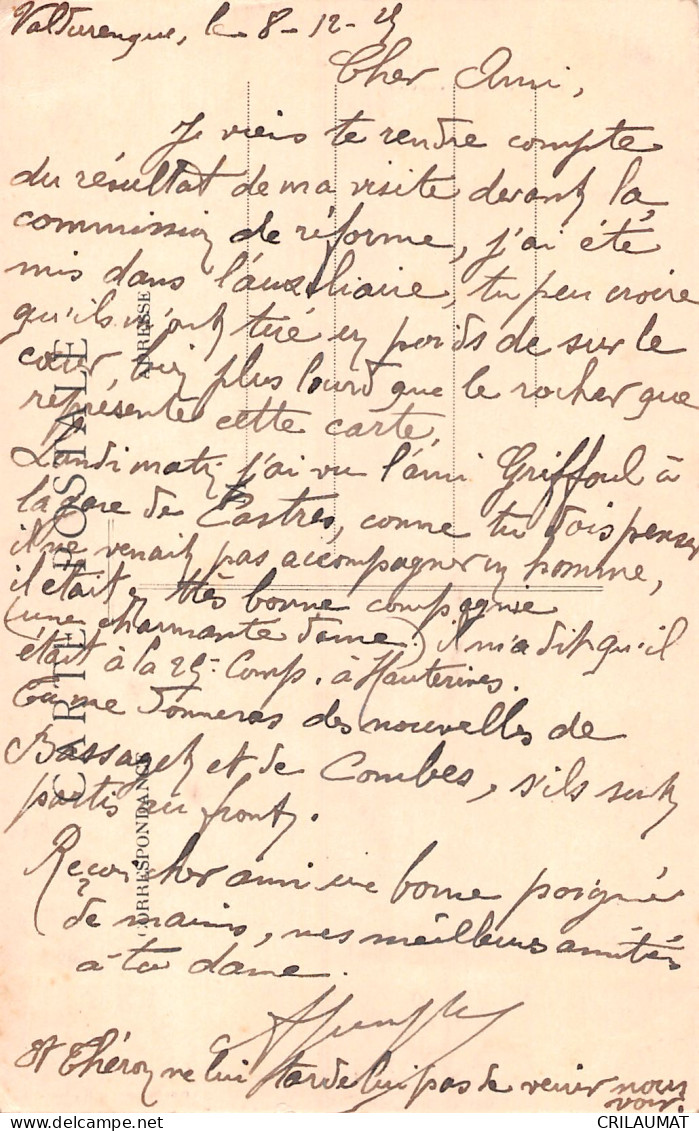 Valdurenque, le 8-12-
Cher Ami,
Je viens te rendre compte
du résultat de ma visite devant la
commission de réforme, j'ai été
mis dans l'auxiliaire, tu peu croire
qu'ils m'ont tiré un poids de sur le
cœur, bien plus lourd que le rocher que
représente cette carte,
Lundi matin j'ai vu l'ami Griffoul à
la gare de Castres, comme tu dois penser
il ne venait pas accompagner un homme,
il était en très bonne compagnie
(une charmante dame) il m'a dit qu'il
était à la 25e Comp. à Hauterives.
Tu me donneras des nouvelles de
Bassaget et de Combes, s'ils sont
partis au front.
Reçoit cher ami une bonne poignée
de mains, mes meilleurs amitiés
à ta dame.
Et Théron ne lui tarde lui pas de venir nous
voir.
CARTE POSTALE
ADRESSE
CORRESPONDANCE
CRILAUMAT